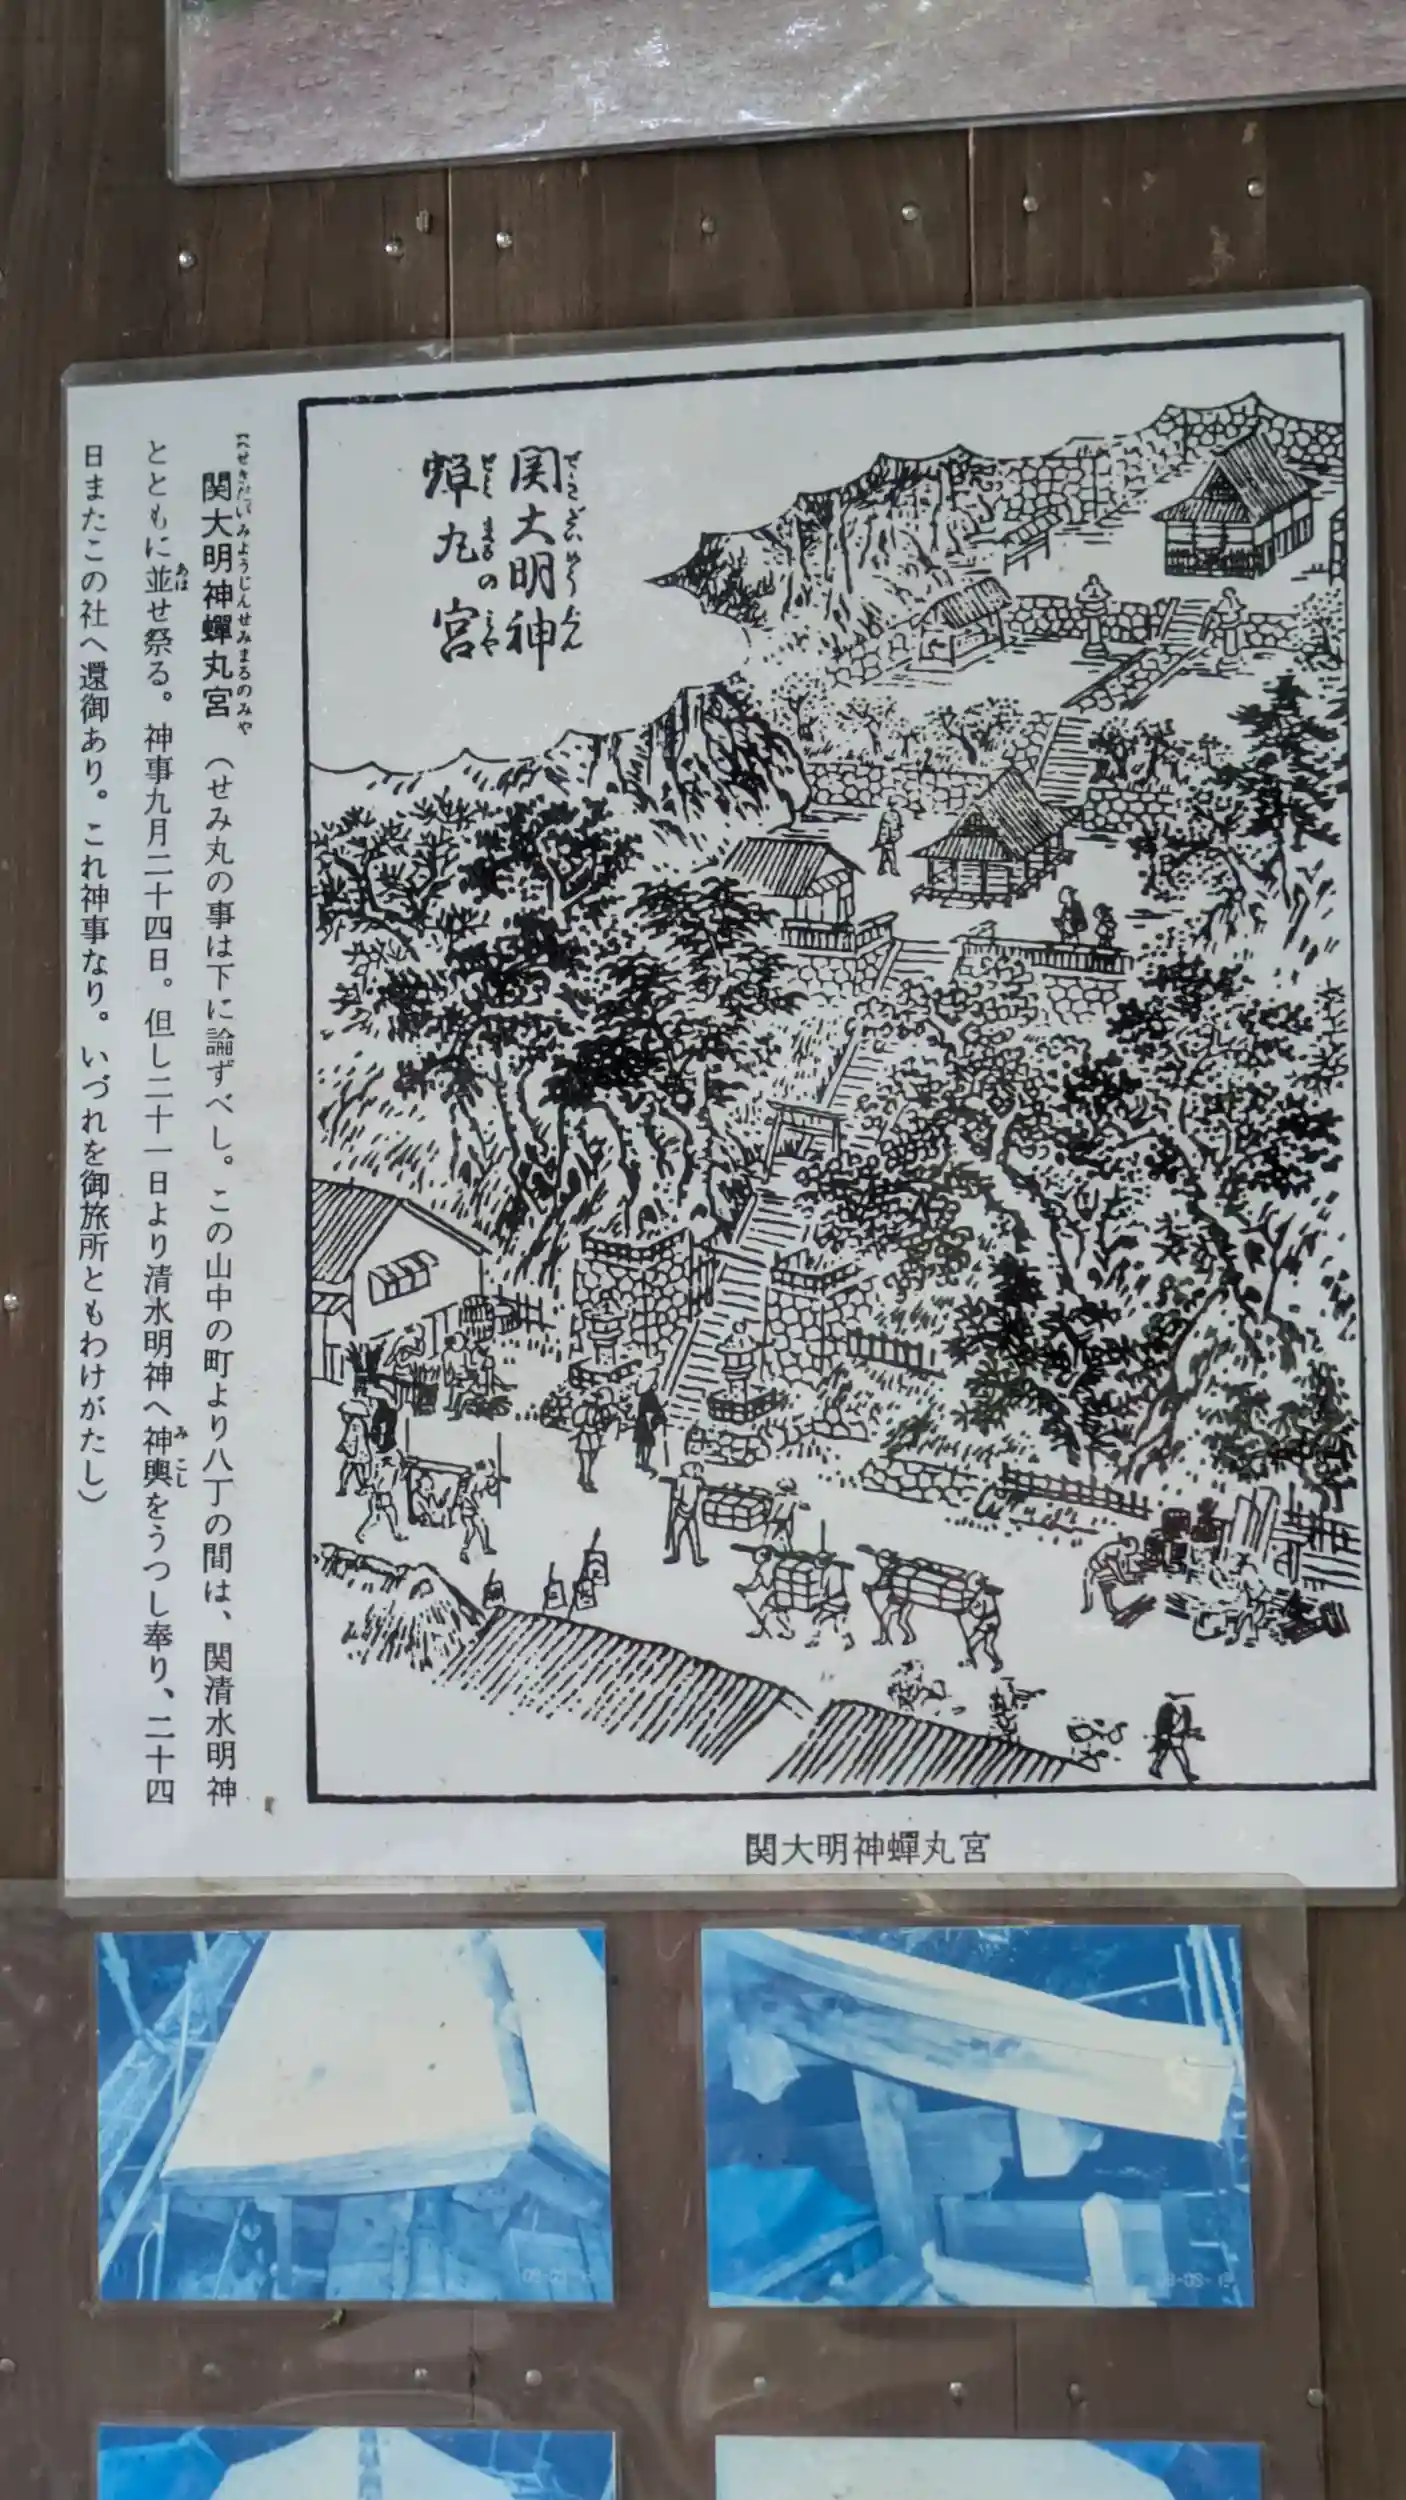 関大明神
蝉丸の宮
関大明神蟬丸宮（せみ丸の事は下に論ずべし。この山中の町より八丁の間は、関清水明神
ともに並せ祭る。神事九月二十四日。但し二十一日より清水明神へ神輿をうつし奉り、二十四
日またこの社へ還御あり。これ神事なり。いづれを御旅所ともわけがたし）
関大明神蟬丸宮